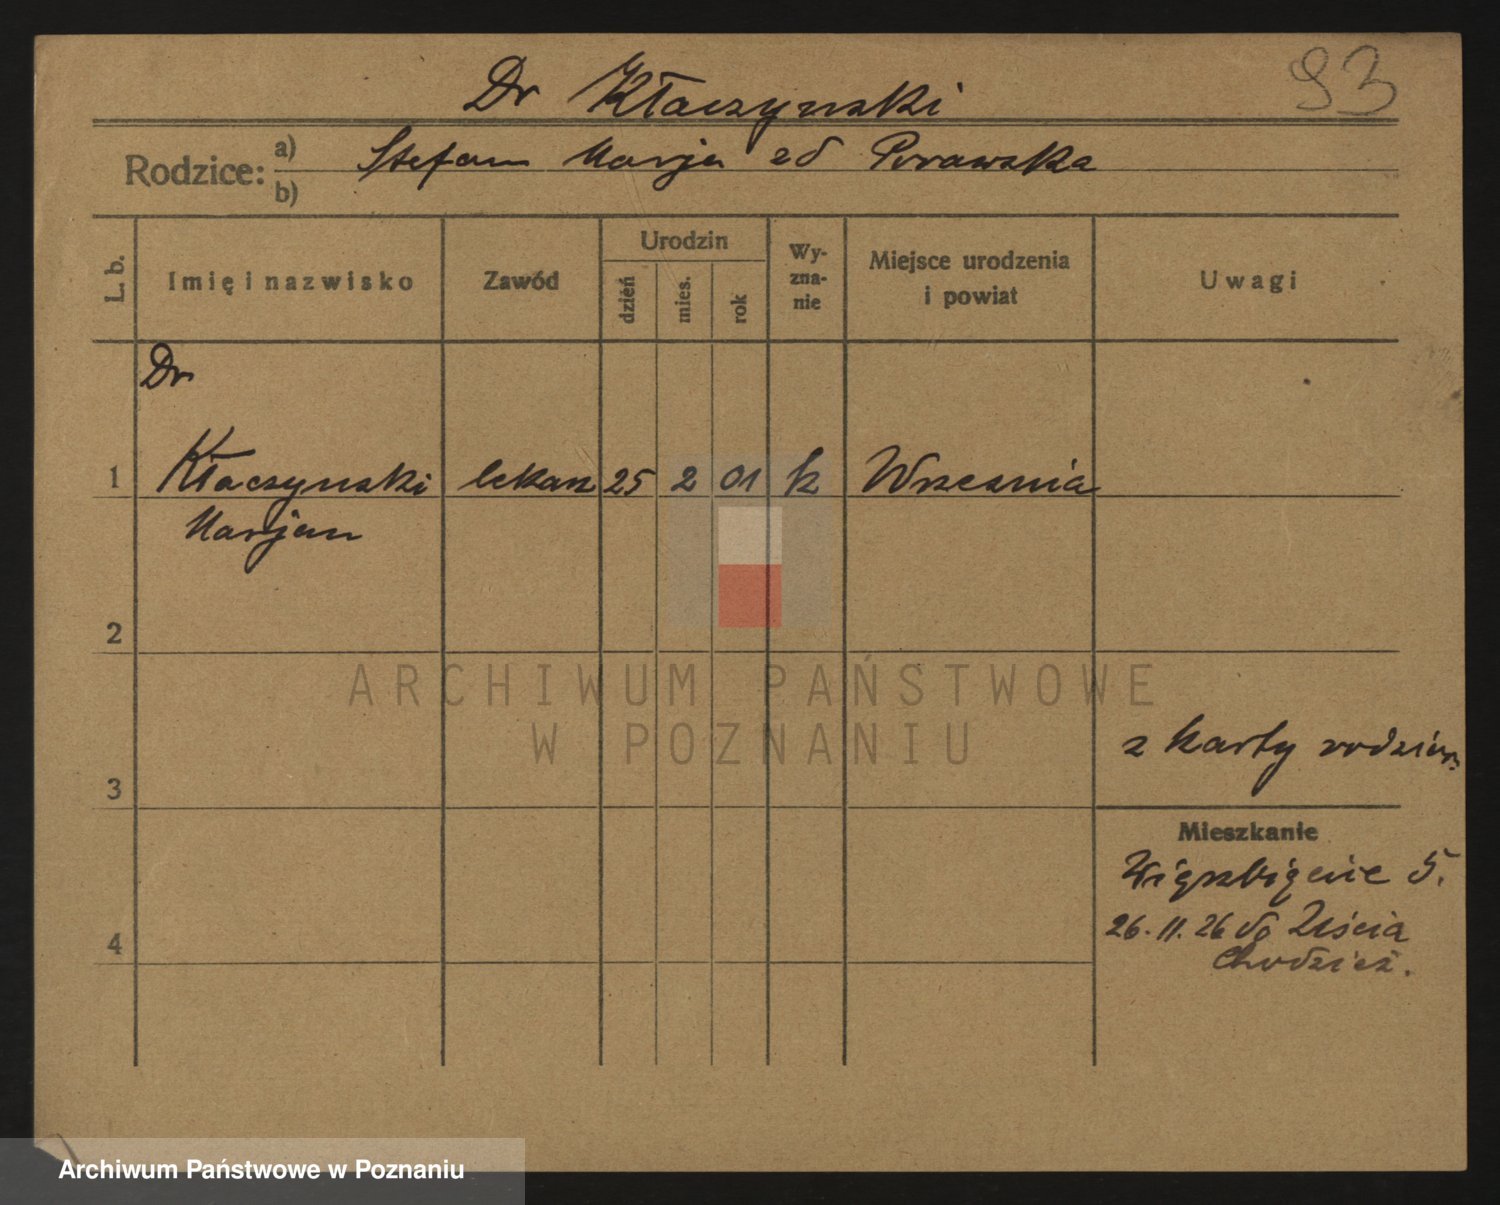 93
Dr Kłaczynski
Rodzice: a) Stefan Marja zd Porawska
b)
L. b. Imię i nazwisko Zawód Urodzin dzień mies. rok Wy-zna-nie Miejsce urodzenia i powiat Uwagi
Dr
1 Kłaczynski lekarz 25 2 01 k Wrzesnia
Marjan
2
ARCHIWUM PAŃSTWOWE
W POZNANIU
z karty rodzicow
3
Mieszkanie
Wierzbięcice 5.
26. 11. 26 do Uścia
4
Chodzież.
Archiwum Państwowe w Poznaniu